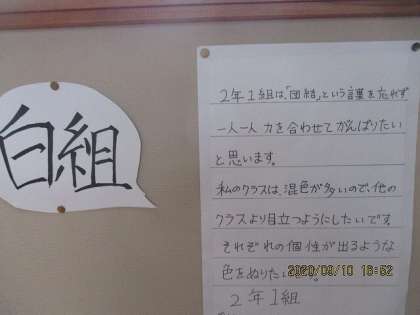 白組
2年1組は、「団結」という言葉を忘れず
一人一人力を合わせてがんばりたい
と思います。
私のクラスは、混色が多いので、他の
クラスより目立つようにしたいです。
それぞれの個性が出るような
色をぬりたい
2020/09/10 16:52
2年1組